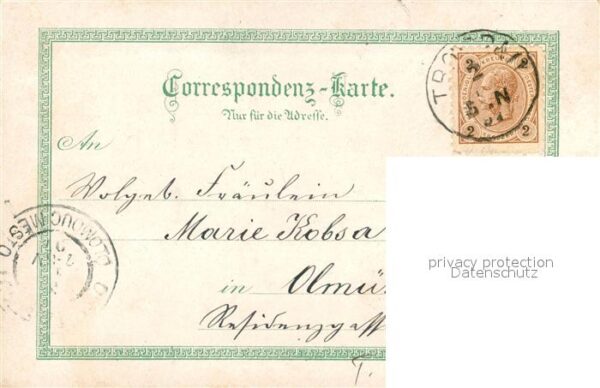 Correspondenz-Karte.
Nur für die Adresse.
An
Wolgeb. Fräulein
Marie Kobsa
in Olmü
Residenzgass
T.
2 2
2 2
OLOMOUC MĚSTO
privacy protection
Datenschutz